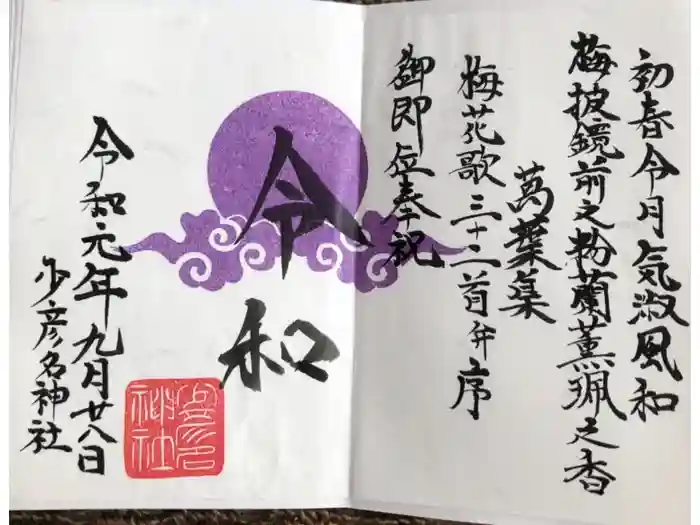 初春令月気淑風和
梅披鏡前之粉蘭薫珮之香
萬葉集
梅花歌三十二首并序
御即位奉祝
令和
令和元年九月廿八日
少彦名神社
少彦名神社